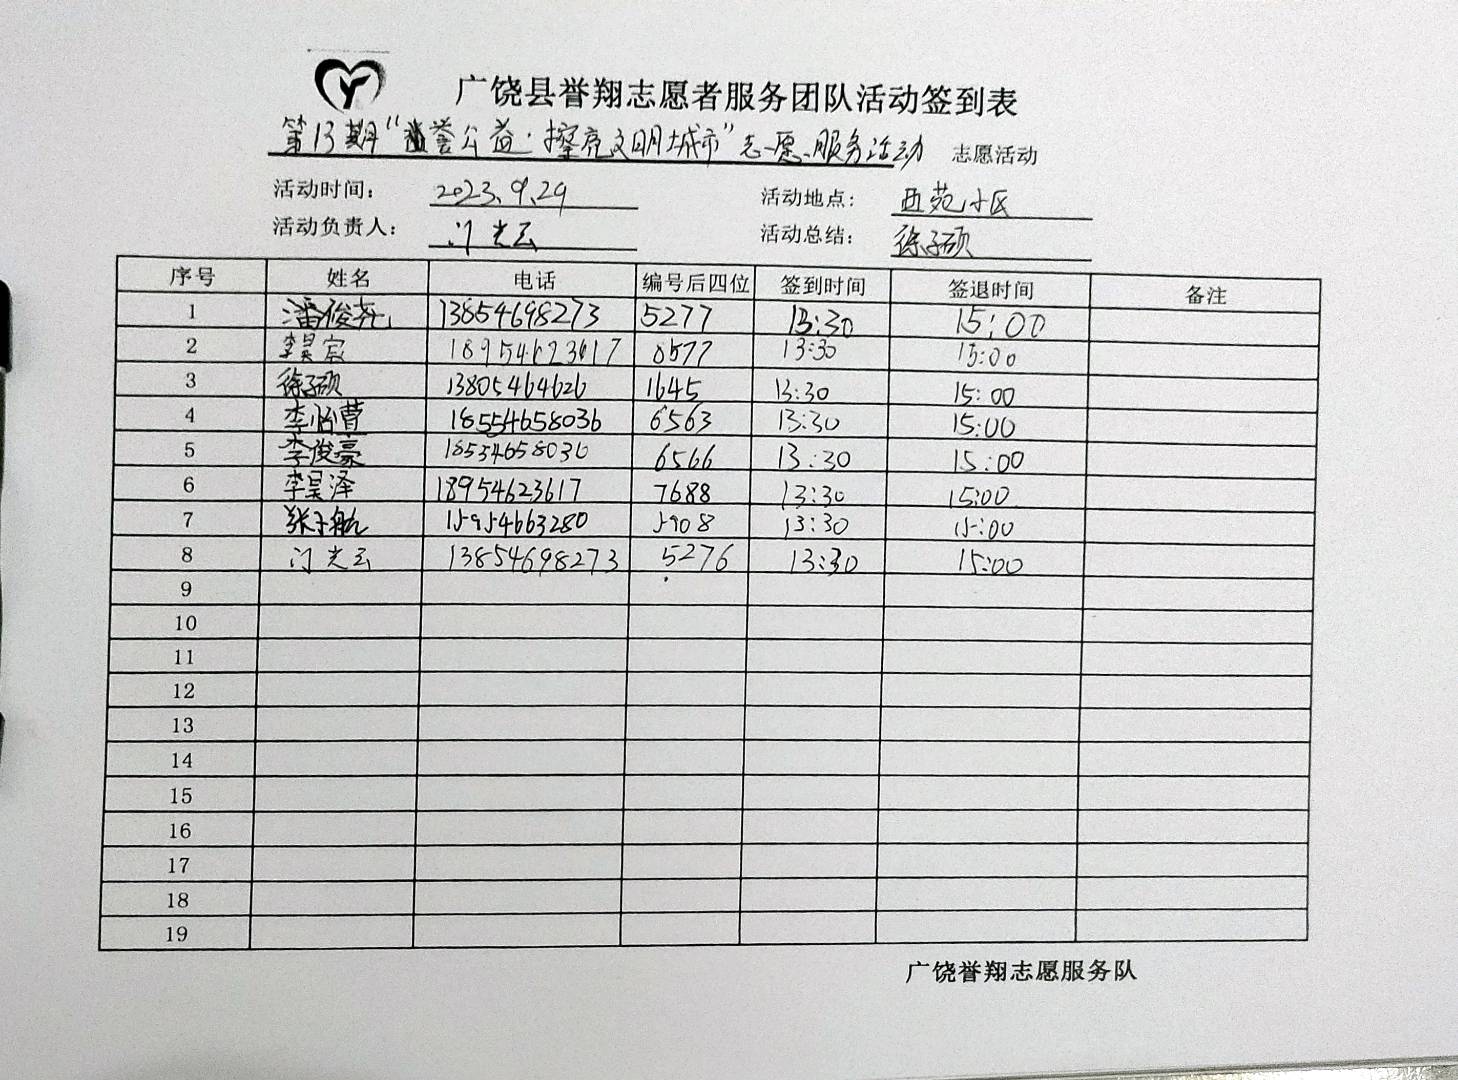 广饶县誉翔志愿者服务团队活动签到表
第13期“誉公益·擦亮文明城市”志愿服务活动 志愿活动
活动时间： 2023.9.29 活动地点： 西苑小区
活动负责人： 门光云 活动总结： 徐子硕
序号 姓名 电话 编号后四位 签到时间 签退时间 备注
1 潘俊尧 13854698273 5277 13:30 15:00
2 李昊宸 18954623617 8577 13:30 15:00
3 徐子硕 13805464626 1645 13:30 15:00
4 李怡萱 18554658036 6563 13:30 15:00
5 李俊豪 18554658036 6566 13:30 15:00
6 李昊泽 18954623617 7688 13:30 15:00
7 张子航 15954663280 5908 13:30 15:00
8 门光云 13854698273 5276 13:30 15:00
9
10
11
12
13
14
15
16
17
18
19
广饶誉翔志愿服务队